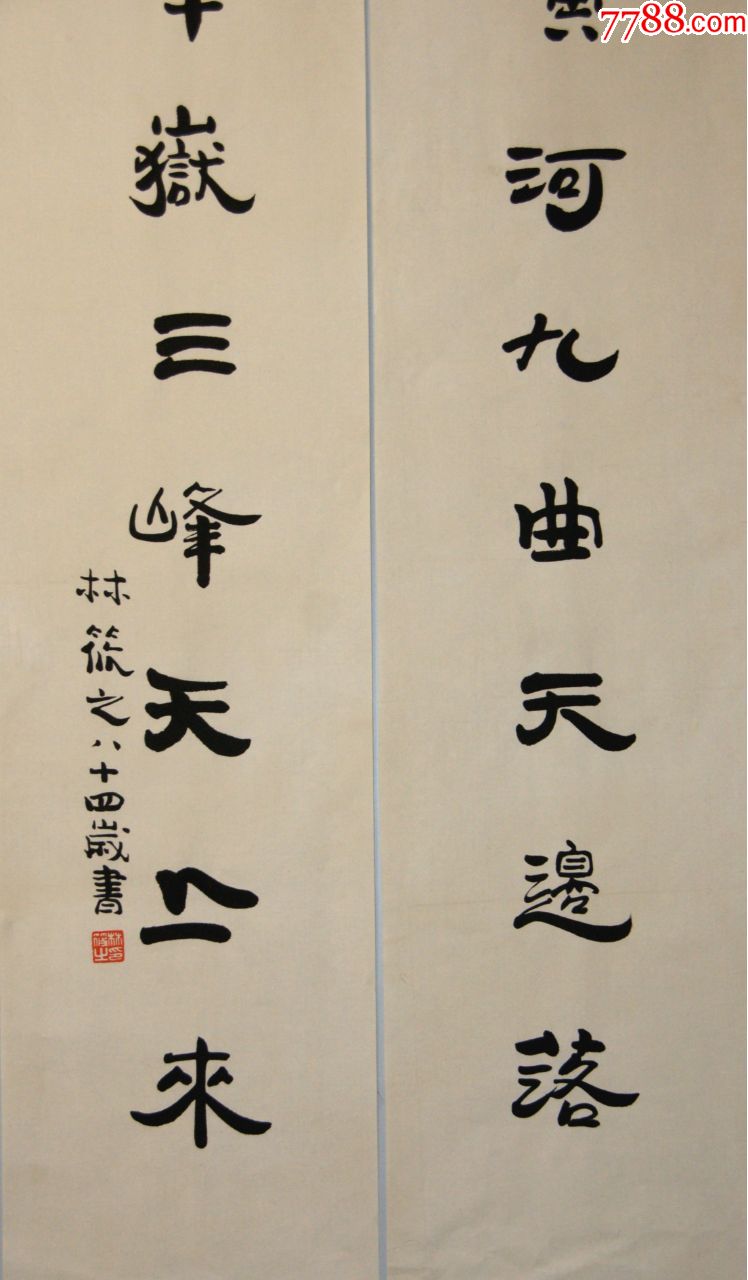 河九曲天邊落
嶽三峰天上來
林筱之八十四歲書
7788.com